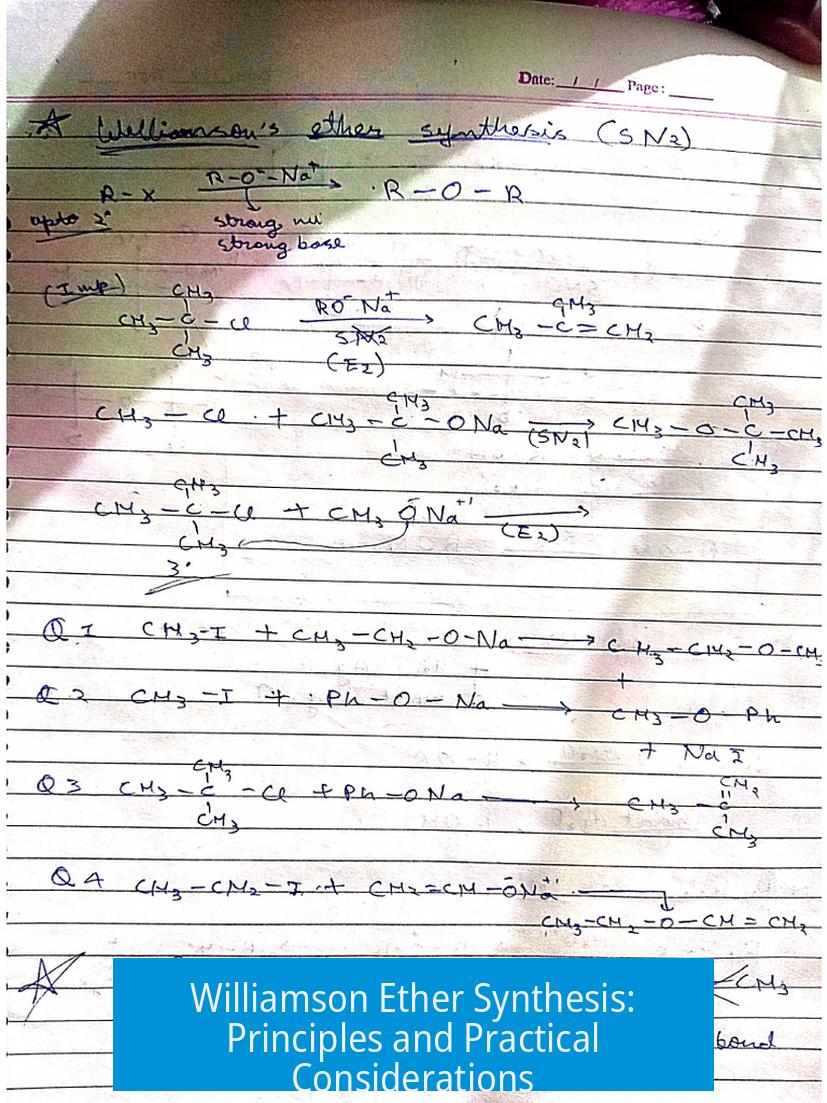 Date: / / Page:
Williamson's ether synthesis (SN2)
R-O⁻-Na⁺
R-X → R-O-R
upto 2° strong nu
strong base
(Imp) CH3 CH3
CH3-C-Cl RO⁻Na⁺ → CH3-C=CH2
CH3 SN2
(E2)
CH3 CH3
CH3-Cl + CH3-C-ONa → CH3-O-C-CH3
CH3 (SN2) CH3
CH3
CH3-C-Cl + CH3ŌNa⁺¹ →
CH3 (E2)
3°
Q1 CH3-I + CH3-CH2-O-Na → CH3-CH2-O-CH
+
Q2 CH3-I + Ph-O-Na → CH3-O-Ph
+ NaI
CH3 CH2
Q3 CH3-C-Cl + Ph-ONa → CH3-C
CH3 CH3
Q4 CH3-CH2-I + CH2=CH-ŌNa⁺¹
CH3-CH2-O-CH=CH2
CH3
bond
Williamson Ether Synthesis:
Principles and Practical
Considerations